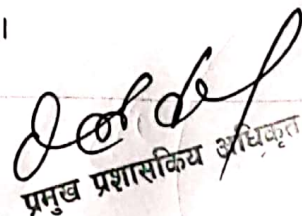 ।
प्रमुख प्रशासकिय अधिकृत